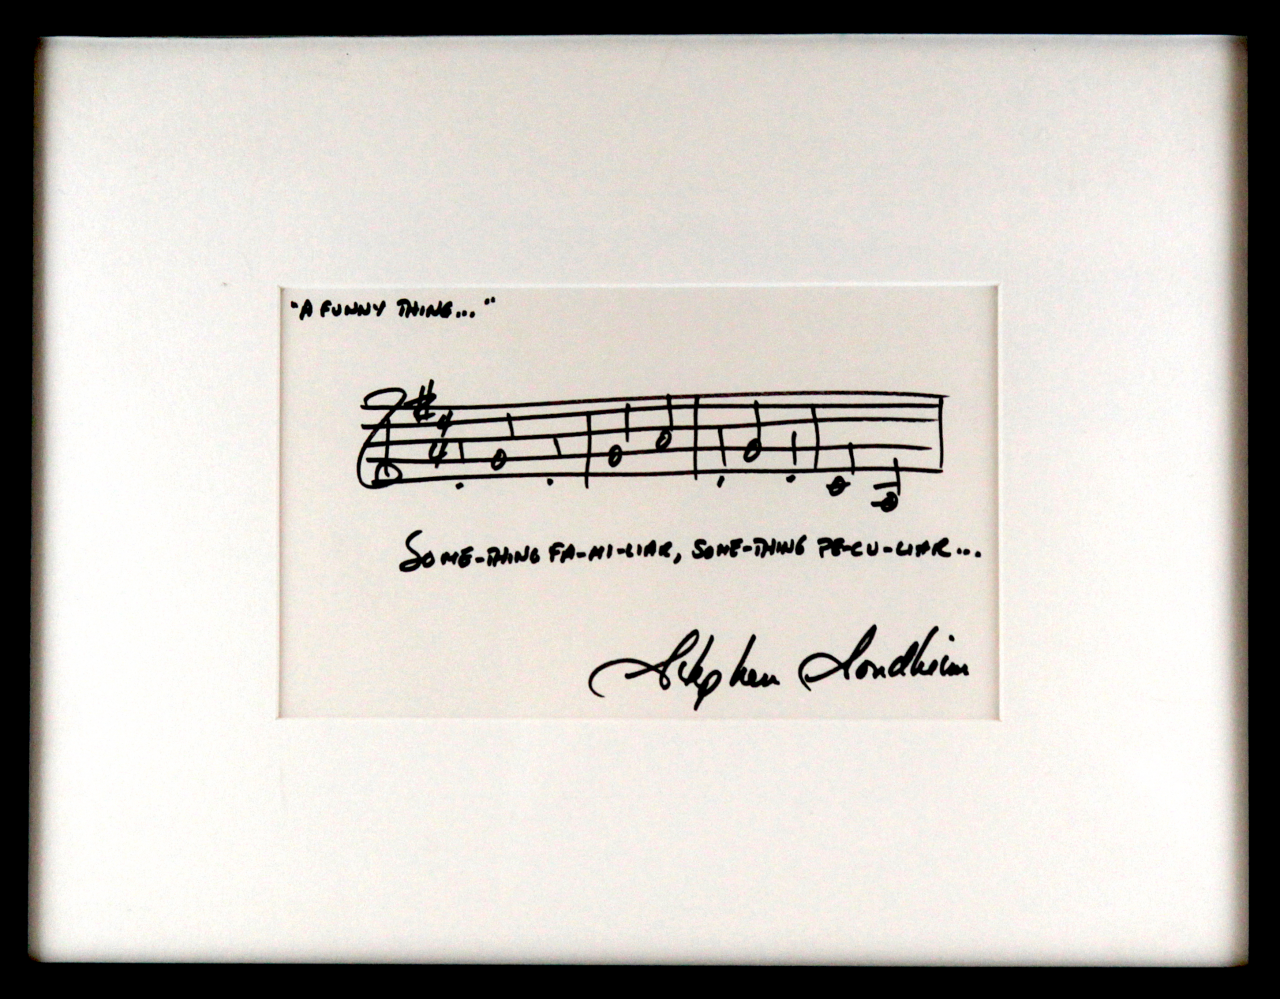 "A FUNNY THING..."
4
4
SOME-THING FA-MI-LIAR, SOME-THING PE-CU-LIAR...
Stephen Sondheim